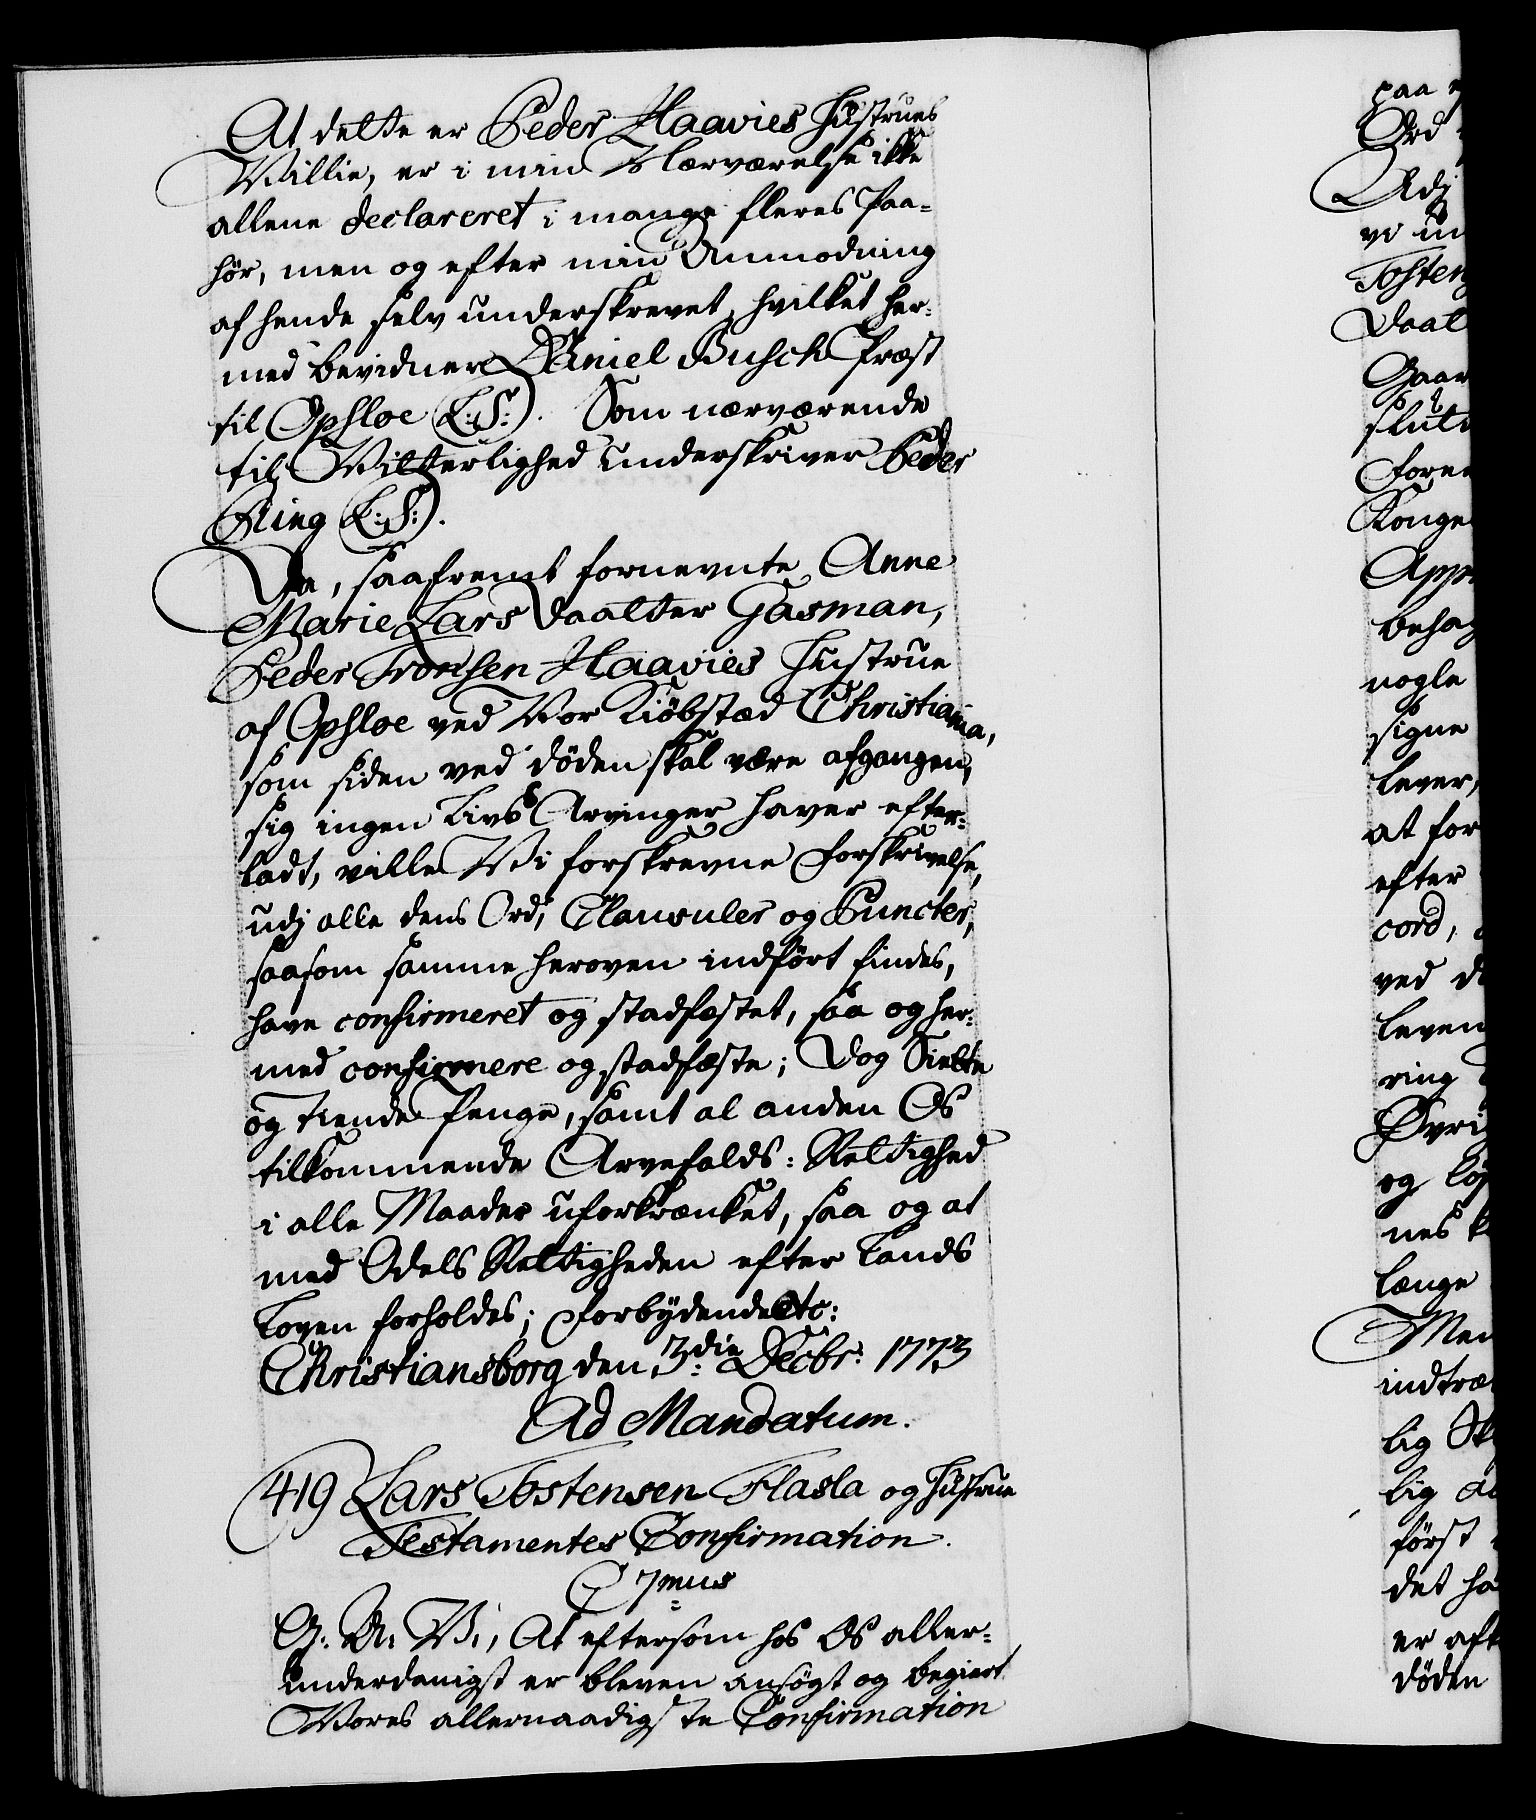 At dette er Peder Haavies Hustrues
Villie, er i min Nærværelse ikke
allene declareret i mange fleres Paa-
hør, men og efter min Anmodning
af hende selv underskrevet, hvilket her-
med bevidner Daniel Busch Præst
til Opsloe (L:S:). Som nærværende
til Vitterlighed underskriver Peder
Ring (L:S:).
Da, saafremt fornevnte Anne
Marie Lars Daatter Gasman,
Peder Haavies Hustrue
af Opsloe ved Vor Kiøbstæd Christiania,
som siden ved døden skal være afgangen,
sig ingen Livs Arvinger haver efter-
ladt, ville Vi forskrevne Forskrivelse,
udj alle dens Ord, Clausuler og Puncter,
saasom samme heroven indført findes,
have confirmeret og stadfæstet, saa og her-
med confirmere og stadfæste; Dog Siette
og tiende Penge, samt al anden Os
tilkommende Arvefalds-Rettighed
i alle Maader uforkrænket, saa og at
med Odels Rettigheden efter Lands
Loven forholdes; Forbydende etc:
Christiansborg den 3die Decbr: 1773
Ad Mandatum.
419 Lars Tostensen Flasla og Hustrue
Testamentes Confirmation.
C 7mus
G: A: Vi, At eftersom hos Os aller-
underdanigst er bleven ansøgt og begiert
Vores allernaadigste Confirmation
paa
Ord
Adj
vi un
Tosten
Daat
Gaar
slut
Forne
Konge
App
behag
nogle
signe
lever,
at for
efter
cord,
ved d
leven
ring
Øvri
og løs
nes k
længe
Men
indtræ
lig Sk
lig
først
det ha
er aft
døden